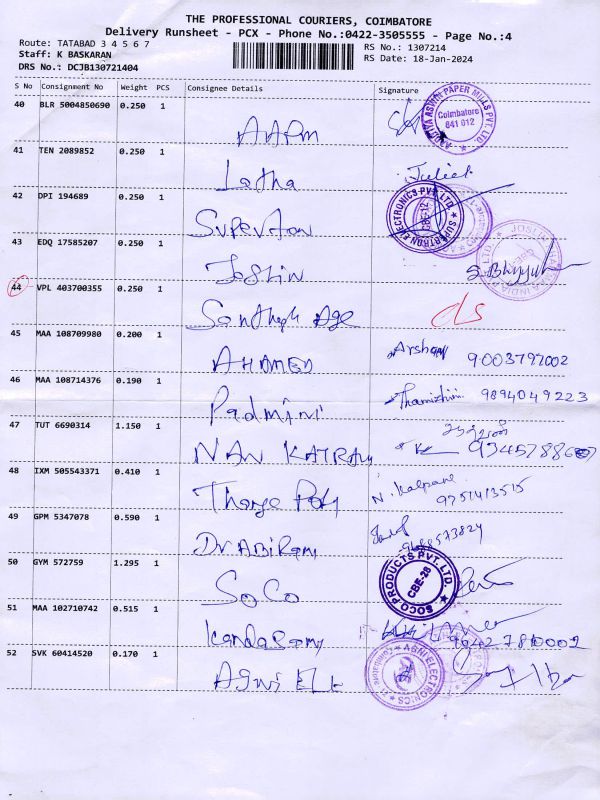 THE PROFESSIONAL COURIERS, COIMBATORE
Delivery Runsheet - PCX - Phone No.:0422-3505555 - Page No.:4
Route: TATABAD 3 4 5 6 7
RS No.: 1307214
Staff: K BASKARAN
RS Date: 18-Jan-2024
DRS No.: DCJB130721404
S No Consignment No Weight PCS Consignee Details Signature
40 BLR 5004850690 0.250 1
AAPM
ADITYA ASWIN PAPER MILLS PVT. LTD
Coimbatore
641 012
41 TEN 2089852 0.250 1
Latha
Juliet
42 DPI 194689 0.250 1
Supertron
SUPERTRON ELECTRONICS PVT. LTD.
CBE-12
43 EDQ 17585207 0.250 1
Joslin
44 VPL 403700355 0.250 1
Santhosh Age
ds
45 MAA 108709980 0.200 1
AHAMED
9003797002
46 MAA 108714376 0.190 1
Padmini
9894049223
47 TUT 6690314 1.150 1
NAN
48 IXM 505543371 0.410 1
N. Kalpana
9751413515
49 GPM 5347078 0.590 1
Dr ABiRami
50 GYM 572759 1.295 1
SoCo
SOCO PRODUCTS PVT. LTD.
CBE-28
51 MAA 102710742 0.515 1
Kandasamy
52 SVK 60414520 0.170 1
Agni Ele
AGNI ELECTRONICS